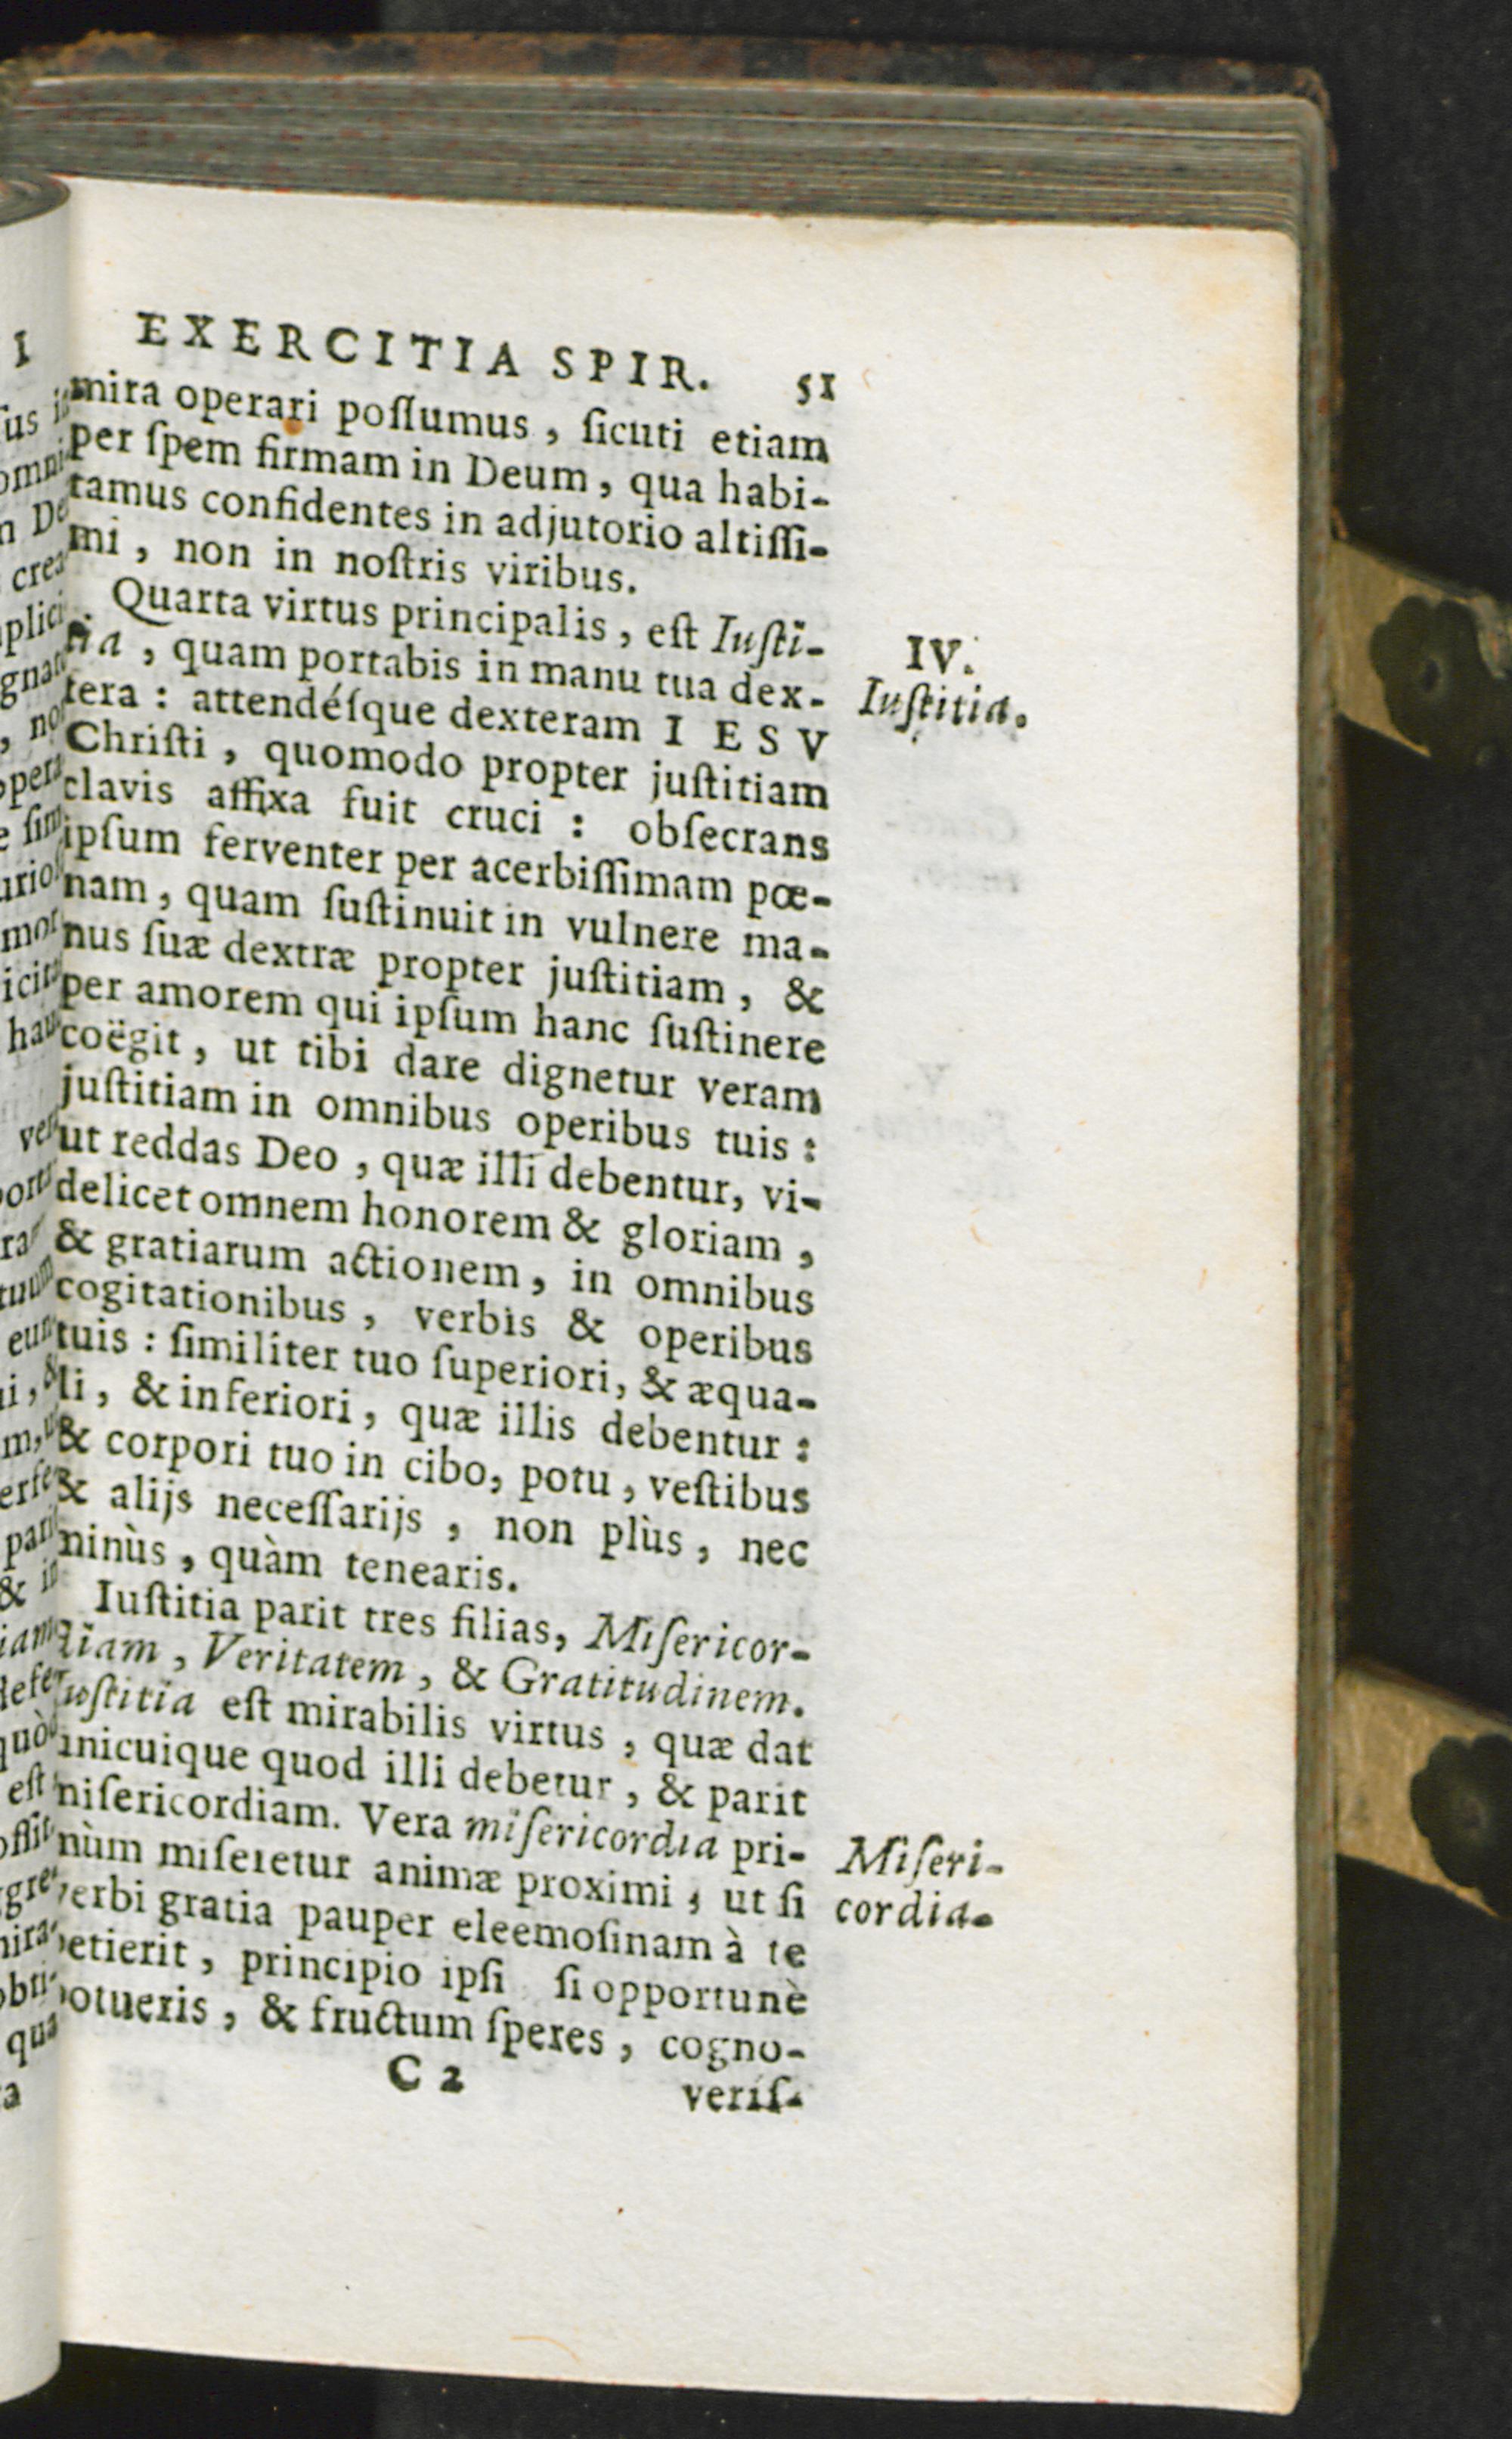 EXERCITIA SPIR. 51
mira operari poſſumus, ſicuti etiam
per ſpem firmam in Deum, qua habi-
tamus confidentes in adjutorio altiſſi-
mi, non in noſtris viribus.
Quarta virtus principalis, eſt Iuſti-
tia, quam portabis in manu tua dex-
tera: attendéſque dexteram IESV
Chriſti, quomodo propter juſtitiam
clavis affixa fuit cruci: obſecrans
ipſum ferventer per acerbiſſimam pœ-
nam, quam ſuſtinuit in vulnere ma-
nus ſuæ dextræ propter juſtitiam, &
per amorem qui ipſum hanc ſuſtinere
coëgit, ut tibi dare dignetur veram
juſtitiam in omnibus operibus tuis:
ut reddas Deo, quæ illi debentur, vi-
delicet omnem honorem & gloriam,
& gratiarum actionem, in omnibus
cogitationibus, verbis & operibus
tuis: ſimiliter tuo ſuperiori, & æqua-
li, & inferiori, quæ illis debentur:
& corpori tuo in cibo, potu, veſtibus
& alijs neceſſarijs, non plùs, nec
minùs, quàm tenearis.
Iuſtitia parit tres filias, Miſericor-
diam, Veritatem, & Gratitudinem.
Iuſtitia eſt mirabilis virtus, quæ dat
unicuique quod illi debetur, & parit
miſericordiam. Vera miſericordia pri-
mùm miſeretur animæ proximi, ut ſi
verbi gratia pauper eleemoſinam à te
petierit, principio ipſi ſi opportunè
potueris, & fructum ſperes, cogno-
C 2 veriſ-
IV.
Iuſtitia.
Miſeri-
cordia.